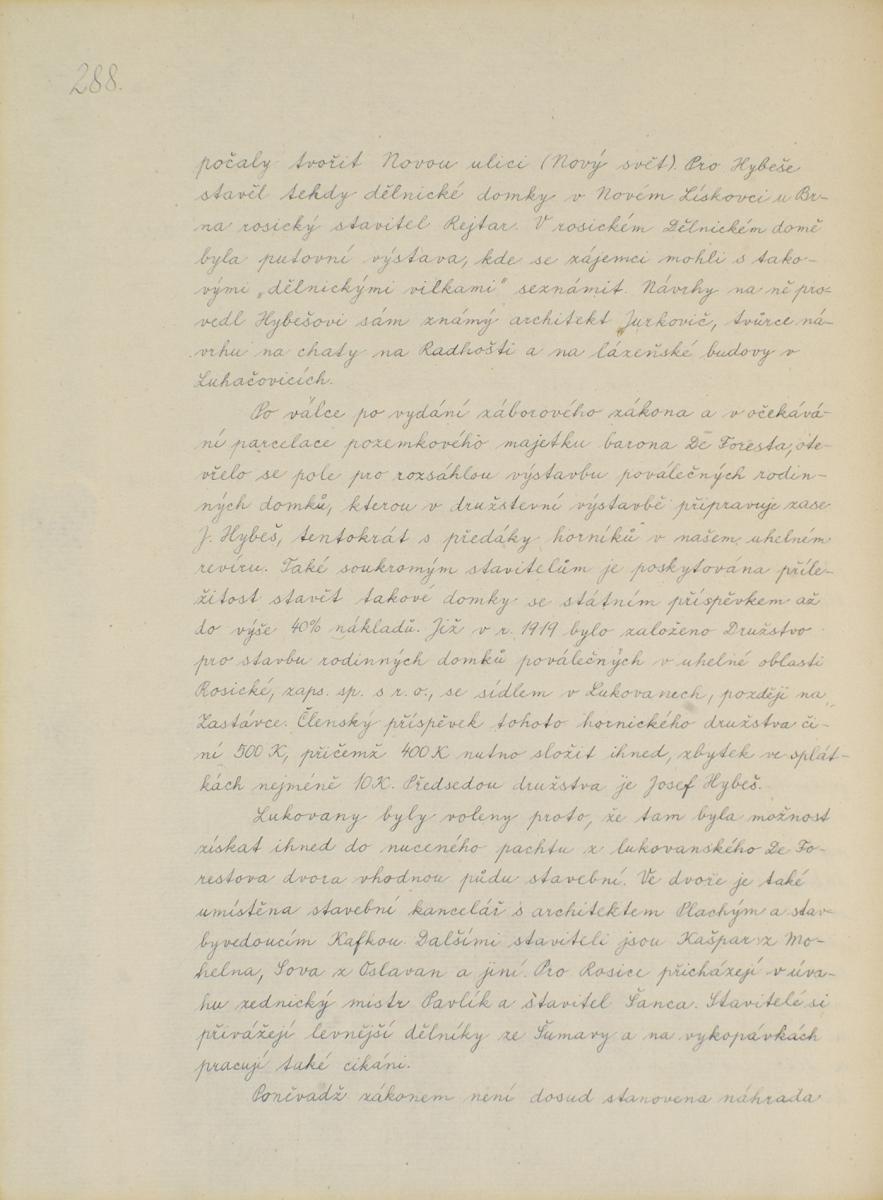 288.
počaly tvořit Novou ulici (Nový svět). Pro Hybeše
stavěl tehdy dělnické domky v Novém Lískovci u Br-
na rosický stavitel Rejtar. V rosickém Dělnickém domě
byla putovní výstava, kde se zájemci mohli s tako-
vými „dělnickými vilkami" seznámit. Návrhy na ně pro-
vedl Hybešovi sám známý architekt Jurkovič, tvůrce ná-
vrhu na chaty na Radhošti a na lázeňské budovy v
Luhačovicích.
Po válce po vydání záborového zákona a v očekává-
ní parcelace pozemkového majetku barona De Foresta, ote-
vřelo se pole pro rozsáhlou výstavbu poválečných rodin-
ných domků, kterou v družstevní výstavbě připravuje zase
J. Hybeš, tentokrát s předáky horníků v našem uhelném
revíru. Také soukromým stavitelům je poskytována příle-
žitost stavět takové domky se státním příspěvkem až
do výše 40% nákladů. Již v r. 1919 bylo založeno Družstvo
pro stavbu rodinných domků poválečných v uhelné oblasti
Rosické, zaps. sp. s r. o., se sídlem v Lukovanech, později na
Zastávce. Členský příspěvek tohoto hornického družstva či-
ní 500 K, přičemž 400 K nutno složit ihned, zbytek ve splát-
kách nejméně 10 K. Předsedou družstva je Josef Hybeš.
Lukovany byly voleny proto, že tam byla možnost
získat ihned do nuceného pachtu z lukovanského De Fo-
restova dvora vhodnou půdu stavební. Ve dvoře je také
umístěna stavební kancelář s architektem Plachým a stav-
byvedoucím Kafkou. Dalšími staviteli jsou Kašpar z Mo-
helna, Sova z Oslavan a jiní. Pro Rosice přicházejí v úva-
hu zednický mistr Pavlík a stavitel Šanca. Stavitelé si
přivážejí levnější dělníky ze Šumavy a na vykopávkách
pracují také cikáni.
Poněvadž zákonem není dosud stanovena náhrada